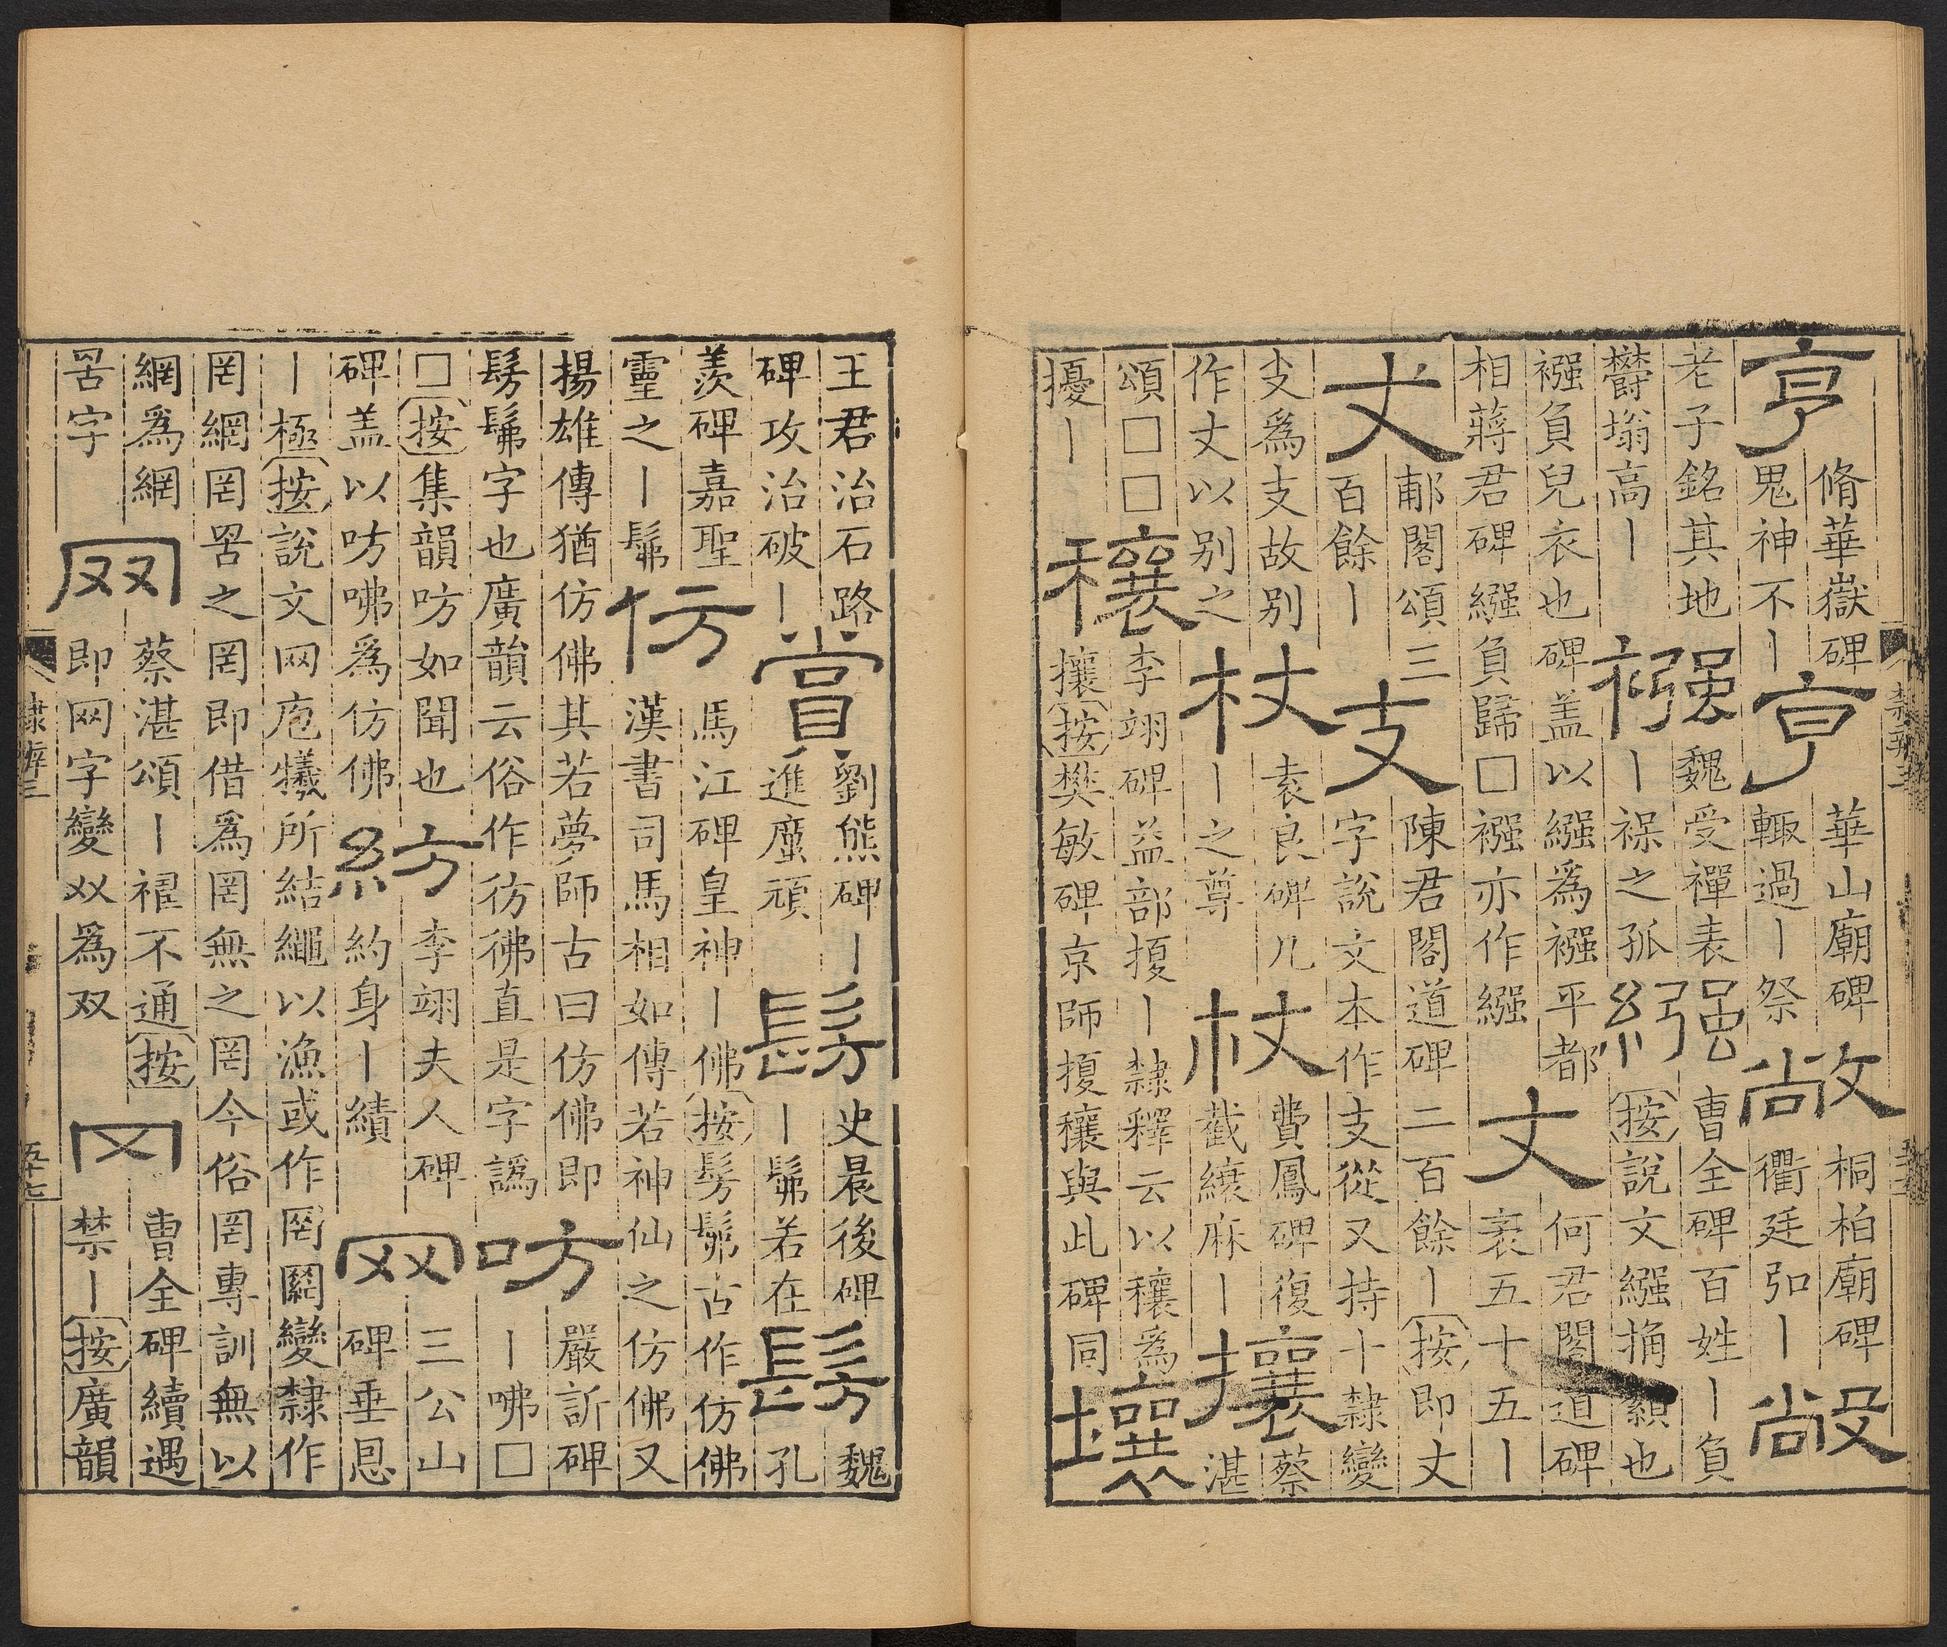 亨
脩華嶽碑
鬼神不丨
亨
華山廟碑
輙過丨祭
敞
桐柏廟碑
衢廷弘丨
敞
老子銘其地
鬱塕高丨
襁
魏受禪表
丨褓之孤
繦
曹全碑百姓丨負
按說文繦觕纇也
襁負兒衣也碑盖以繦爲襁平都
相蔣君碑繦負歸□襁亦作繦
丈
何君閣道碑
袤五十五丨
丈
郙閣頌三
百餘丨
支
陳君閣道碑二百餘丨按即丈
字說文本作支從又持十隸變
支爲支故别
作丈以别之
杖
袁良碑几
丨之尊
杖
費鳳碑復
截縗麻丨
攘
蔡
湛
頌□□
擾丨
穰
李翊碑益部擾丨隸釋云以穰爲
攘按樊敏碑京師擾穰與此碑同
壤
王君治石路
碑攻治破丨
嘗
劉熊碑丨
進厲頑
髣
史晨後碑
丨髴若在
髣
魏
孔
羡碑嘉聖
靈之丨髴
仿
馬江碑皇神丨佛按髣髴古作仿佛
漢書司馬相如傳若神仙之仿佛又
揚雄傳猶仿佛其若夢師古曰仿佛即
髣髴字也廣韻云俗作彷彿直是字譌
㕫
嚴訢碑
丨咈□
□按集韻㕫如聞也
碑盖以㕫咈爲仿佛
紡
李翊夫人碑
約身丨績
网
三公山
碑垂恩
丨極按說文网庖犧所結繩以漁或作罔䋄變隸作
罔網罔罟之罔即借爲罔無之罔今俗罔專訓無以
網爲網
罟字
网
蔡湛頌丨襢不通按
即网字變㸚爲双
冈
曹全碑續遇
禁丨按廣韻
隸辨三
五十七